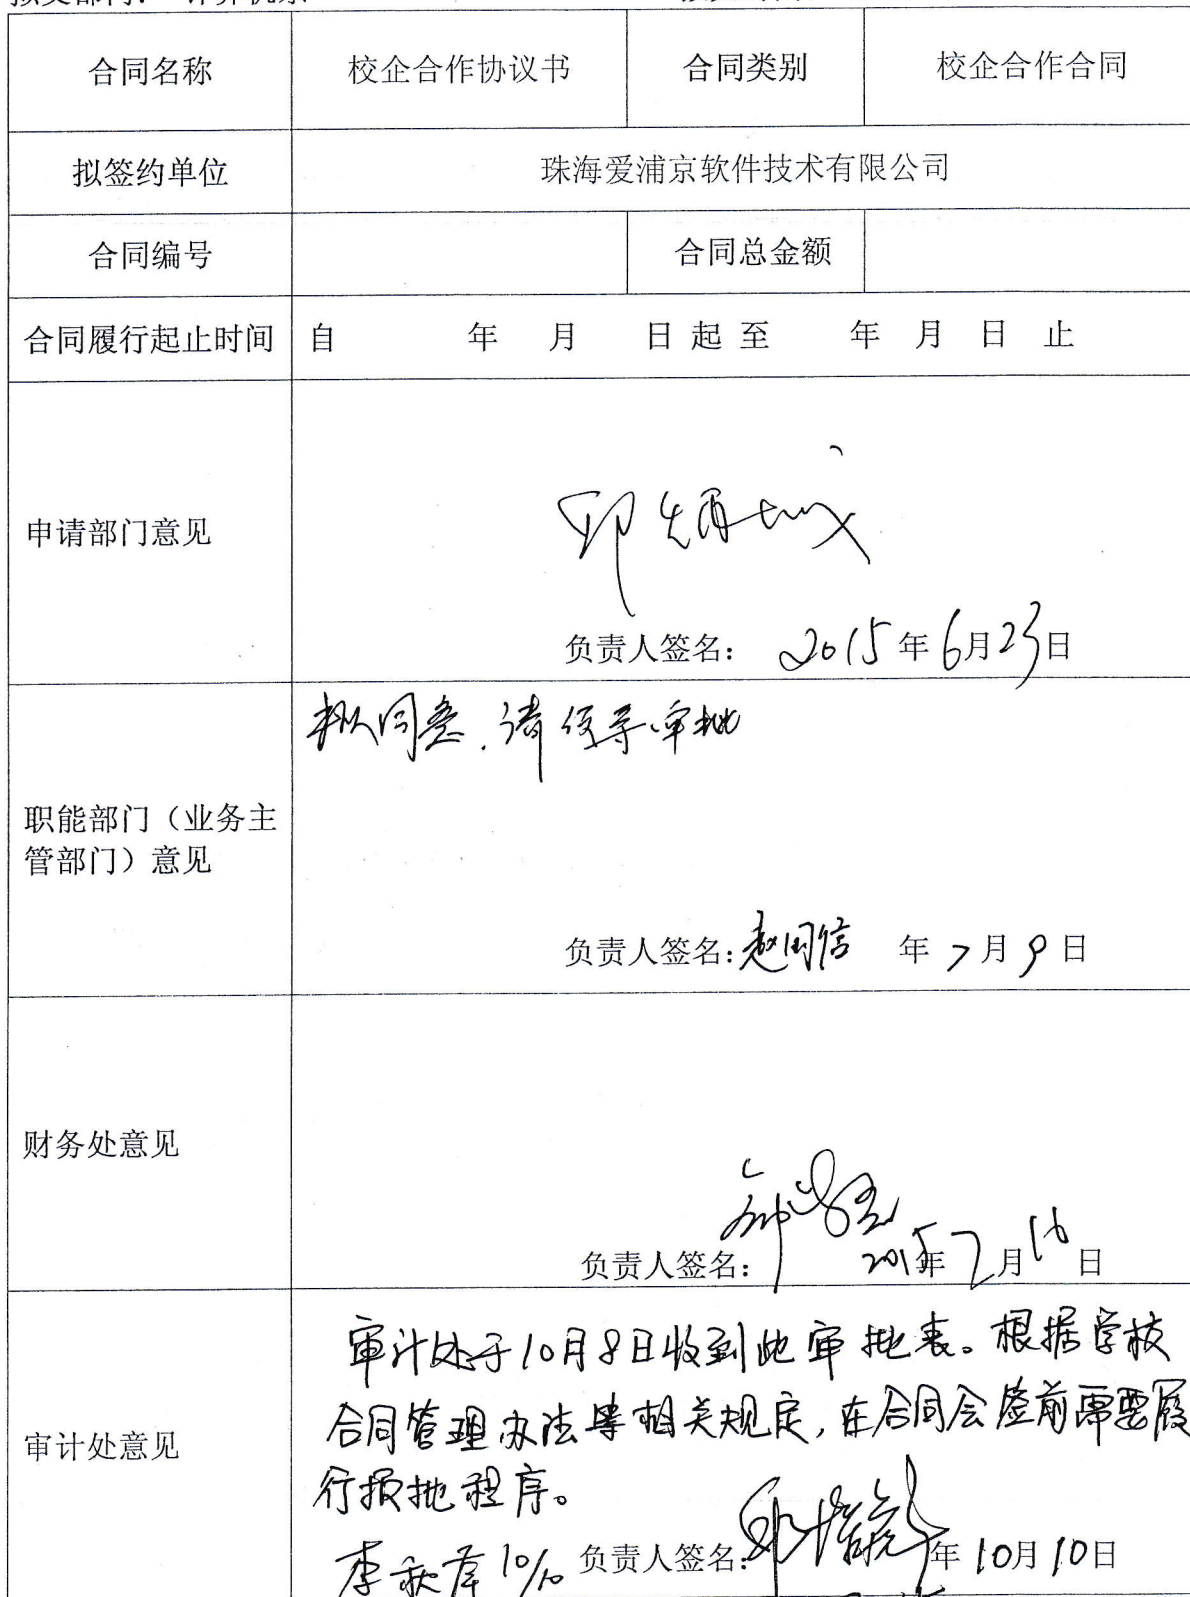 合同名称 校企合作协议书 合同类别 校企合作合同
拟签约单位 珠海爱浦京软件技术有限公司
合同编号 合同总金额
合同履行起止时间 自 年 月 日 起 至 年 月 日 止
申请部门意见
负责人签名： 2015年6月23日
拟同意，请领导审批
职能部门（业务主
管部门）意见
负责人签名：赵国信 年7月9日
财务处意见
负责人签名： 2015年7月16日
审计处于10月8日收到此审批表。根据学校
合同管理办法等相关规定，在合同会签前需要履
审计处意见
行报批程序。
李秋 10/10 负责人签名： 年10月10日